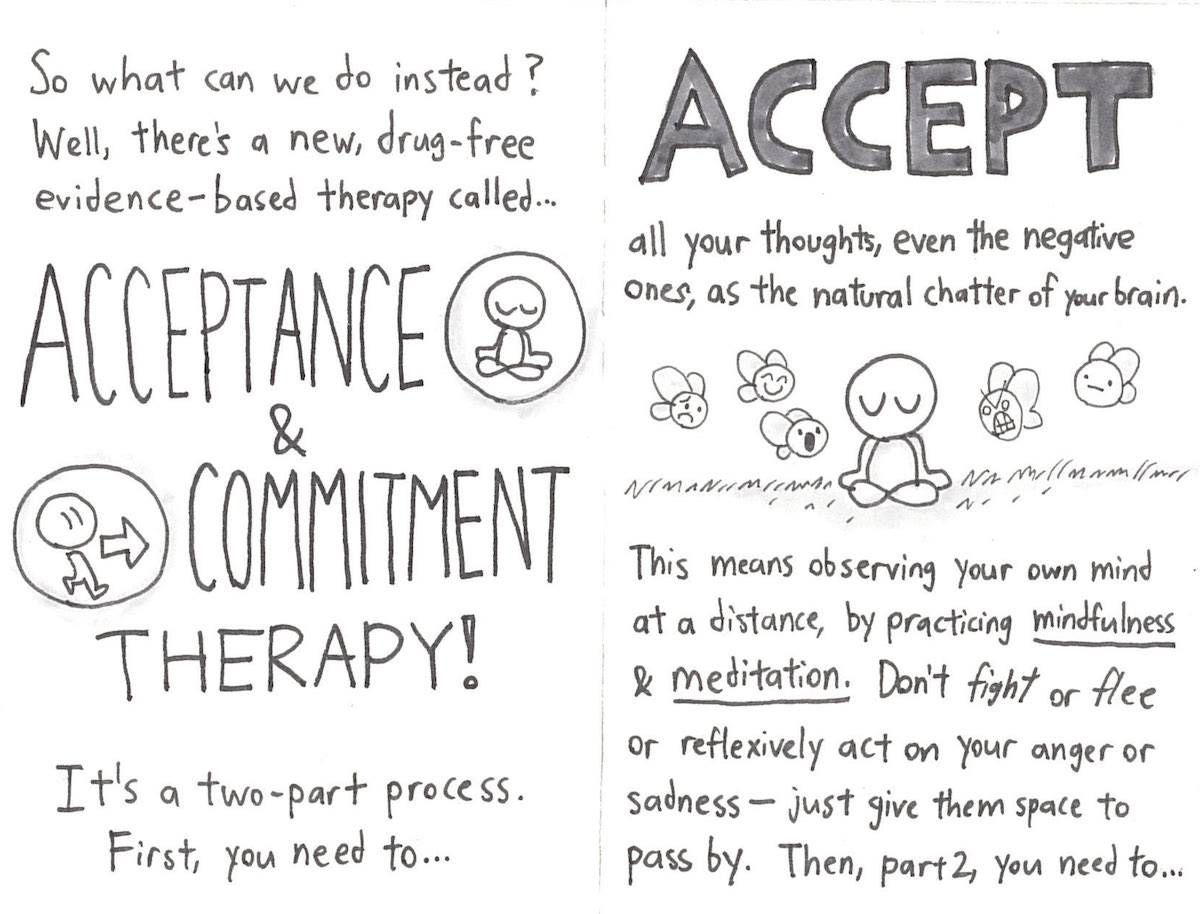 So what can we do instead?
Well, there's a new, drug-free
evidence-based therapy called...
ACCEPTANCE
&
COMMITMENT
THERAPY!
It's a two-part process.
First, you need to...
ACCEPT
all your thoughts, even the negative
ones, as the natural chatter of your brain.
This means observing your own mind
at a distance, by practicing mindfulness
& meditation. Don't fight or flee
or reflexively act on your anger or
sadness — just give them space to
pass by. Then, part 2, you need to...